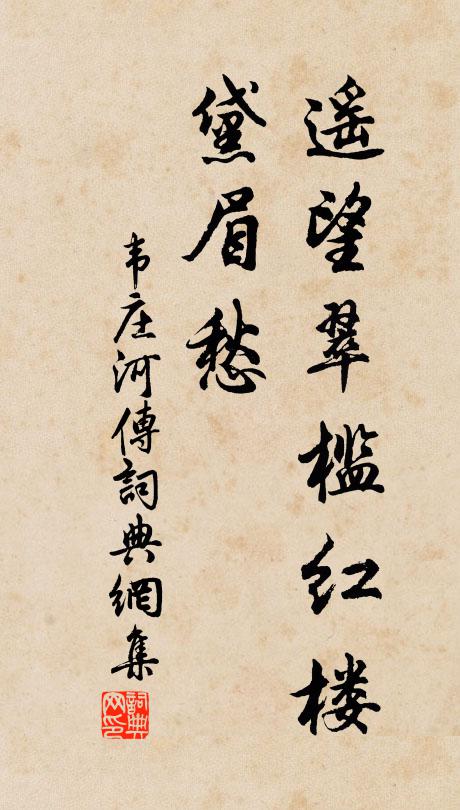 遥望翠檻红楼
黛眉愁
韦庄河傳詞典網集
詞典网印